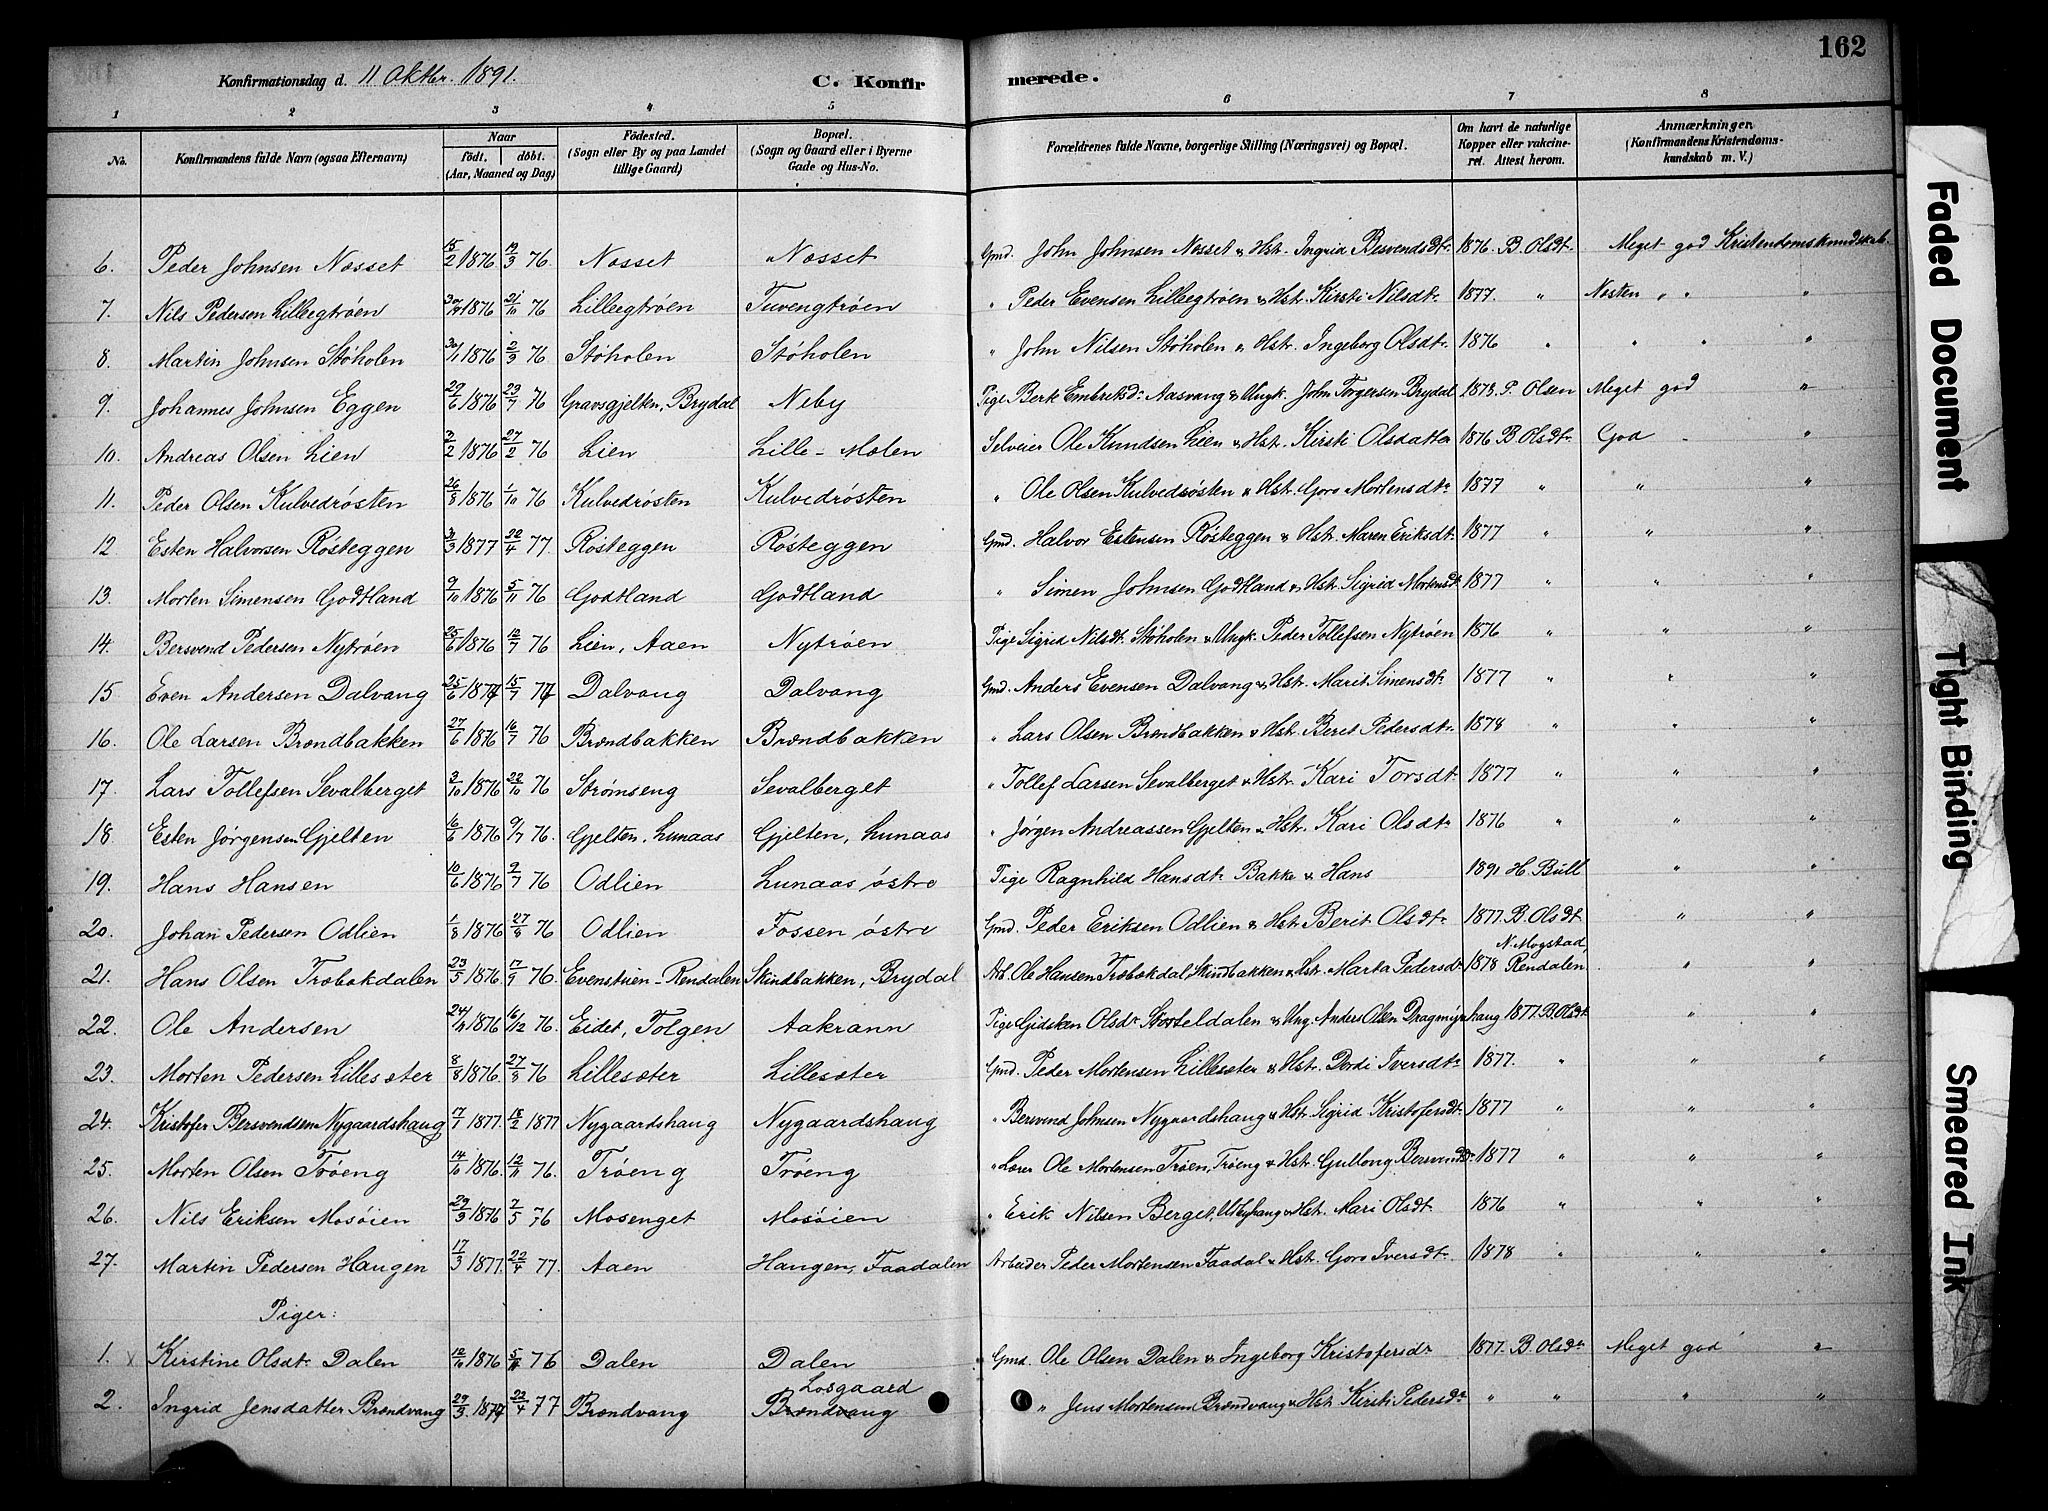 162
Konfirmationsdag d. 11 Oktbr. 1891. C. Konfirmerede.
1 2 3 4 5 6 7 8
No. Konfirmandens fulde Navn (ogsaa Efternavn) Naar født. døbt. (Aar, Maaned og Dag) Fødested. (Sogn eller By og paa Landet tillige Gaard) Bopæl. (Sogn og Gaard eller i Byerne Gade og Hus-No. Forældrenes fulde Navne, borgerlige Stilling (Næringsvei) og Bopæl. Om havt de naturlige Kopper eller vakcineret. Attest herom. Anmærkninger. (Konfirmandens Kristendomskundskab m. V.)
6. Peder Johnsen Nosset 15/2 1876 19/3 76 Nosset Nosset Gmd. John Johnsen Nosset & Hst. Ingrid Bersvendsdtr 1876 B. Olsdtr Meget god Kristendomskundskab.
7. Nils Pedersen Lilleegtrøen 1876 21/10 76 Lilleegtrøen Tuvengtrøen " Peder Evensen Lilleegtrøen & Hst. Kirsti Nilsdtr 1877. " Næsten " " "
8. Martin Johnsen Støholen 30/1 1876 2/3 76 Støholen Støholen " John Nilsen Støholen & Hst. Ingeborg Olsdtr 1876 " " " "
9. Johannes Johnsen Eggen 29/6 1876 23/7 76 Gravsgjelten, Brydal Neby Pige Berit Embretsdr Aasvang & Ungk. John Torgersen Brydal 1878. P. Olsen Meget god "
10. Andreas Olsen Lien 3/2 1876 27/2 76 Lien Lille-Moen Selveier Ole Knudsen Lien & Hst. Kirsti Olsdatter 1876 B. Olsdtr God - "
11. Peder Olsen Kulvedrøsten 26/8 1876 1/10 76 Kulvedrøsten Kulvedrøsten " Ole Olsen Kulvedrøsten & Hst. Goro Mortensdtr 1877 " " "
12 Esten Halvorsen Røsteggen 3/3 1877 22/4 77. Røsteggen Røsteggen Gmd. Halvor Estensen Røsteggen & Hst. Maren Eriksdtr 1877 " " "
13. Morten Simensen Godtland 9/10 1876 5/11 76 Godtland Godtland " Simen Johnsen Godtland & Hst. Sigrid Mortensdtr 1877 " " "
14. Bersvend Pedersen Nytrøen 25/6 1876 12/7 76 Lien, Aaen Nytrøen Pige Sigrid Nilsdtr Støholen & Ungk. Peder Tollefsen Nytrøen 1876 " " "
15 Even Andersen Dalvang 25/6 1877 15/7 77 Dalvang Dalvang Gmd. Anders Evensen Dalvang & Hst. Marit Simensdtr 1877 " " "
16. Ole Larsen Brændbakken 27/6 1876 16/7 76 Brændbakken Brændbakken " Lars Olsen Brændbakken & Hst. Berit Pedersdtr 1878 " " "
17. Lars Tollefsen Sevalberget 3/10 1876 22/10 76 Strømseng Sevalberget " Tollef Larsen Sevalberget & Hst. Kari Torsdtr 1877 " " "
18. Esten Jørgensen Gjelten 16/6 1876 9/7 76. Gjelten, Lunaas Gjelten, Lunaas " Jørgen Andreassen Gjelten & Hst. Kari Olsdtr 1876 " " "
19. Hans Hansen 10/6 1876 2/7 76 Odlien Lunaas østre Pige Ragnhild Hansdtr Bakke & Hans 1891 H. Bull " "
20. Johan Pedersen Odlien 1/8 1876 27/8 76 Odlien Fossen østre Gmd. Peder Eriksen Odlien & Hst. Berit Olsdtr 1877. B. Olsdt. " "
21. Hans Olsen Træbækdalen 23/5 1876 17/9 76 Evenstuen-Rendalen Skindbakken, Brydal Arb. Ole Hansen Træbækdal, Skindbakken & Hst. Marta Pedersdtr 1878 N. Mogstad, Rendalen. " "
22. Ole Andersen 1876 16/12 76. Eidet, Tolgen Aakrann Pige Gidsken Olsdr Storteldalen & Ung. Anders Olsen Dragmyrhaug 1877. B. Olsdtr " "
23. Morten Pedersen Lillesæter 8/8 1876. 27/8 76 Lillesæter Lillesæter Gmd. Peder Mortensen Lillesæter & Hst. Dordi Iversdtr 1877. " " "
24. Kristofer Bersvendsen Nygaardshaug 17/1 1877. 18/2 1877 Nygaardshaug Nygaardshaug " Bersvend Johnsen Nygaardshaug & Hst. Sigrid Kristofersdtr 1877 " " "
25. Morten Olsen Trøeng 14/10 1876. 12/11 76. Trøeng Trøeng " Lærer Ole Mortensen Trøen, Trøeng & Hst. Gullaug Bersvendsdr 1877 " " "
26. Nils Eriksen Mosøien 29/3 1876 7/5 76 Mosenget Mosøien " Erik Nilsen Berget, Utbyhaug & Hst. Mari Olsdt. 1876 " " "
27. Martin Pedersen Haugen 17/3 1877. 22/4 77. Aaen Haugen, Faadalen Arbeider Peder Mortensen Faadal & Hst. Goro Iversdtr 1878 " " "
Piger:
1. x Kirstine Olsdtr Dalen 12/10 1876 5/11 76 Dalen Dalen Gmd. Ole Olsen Dalen & Ingeborg Kristofersdr 1877. B. Olsdr Meget god "
2. Ingrid Jensdatter Brændvang 29/3 1877 22/4 77 Brændvang Losgaard Brændvang " Jens Mortensen Brændvang & Hst. Kirsti Pedersdr " " " "
Faded Document
Tight Binding
Smeared Ink